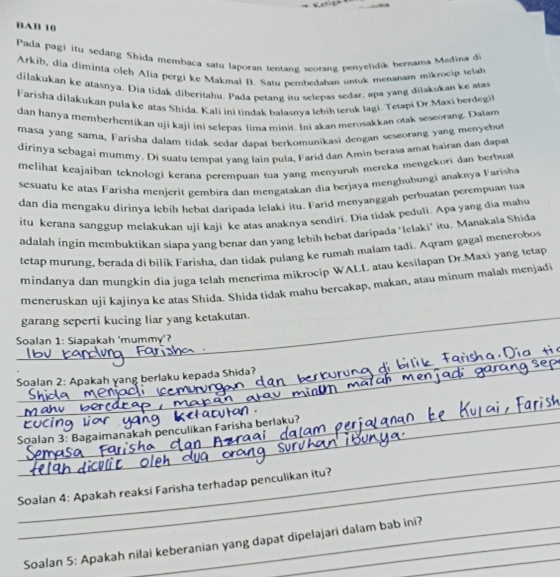 BAB 10
Pada pagi itu sedang Shida membaca satu laporan tentang seorang penyelidik bernama Medina di
Arkib, dia diminta oleh Alia pergi ke Makmal B. Satu pembedahan untuk menanam mikrocip telah
dilakukan ke atasnya. Dia tidak diberitahu. Pada petang itu selepas sedar, apa yang dilakukan ke atas
Farisha dilakukan pula ke atas Shida. Kali ini tindak balasnya lebih teruk lagi. Tetapi Dr.Maxi berdegil
dan hanya memberhentikan uji kaji ini selepas lima minit. Ini akan merosakkan otak seseorang. Dalam
masa yang sama, Farisha dalam tidak sedar dapat berkomunikasi dengan seseorang yang menyebut
dirinya sebagai mummy. Di suatu tempat yang lain pula, Farid dan Amin berasa amat hairan dan dapat
melihat keajaiban teknologi kerana perempuan tua yang menyuruh mereka mengekori dan berbuat
sesuatu ke atas Farisha menjerit gembira dan mengatakan dia berjaya menghubungi anaknya Farisha
dan dia mengaku dirinya lebih hebat daripada lelaki itu. Farid menyanggah perbuatan perempuan tua
itu kerana sanggup melakukan uji kaji ke atas anaknya sendiri. Dia tidak peduli. Apa yang dia mahu
adalah ingin membuktikan siapa yang benar dan yang lebih hebat daripada 'lelaki' itu. Manakala Shida
tetap murung, berada di bilik Farisha, dan tidak pulang ke rumah malam tadi. Aqram gagal menerobos
mindanya dan mungkin dia juga telah menerima mikrocip WALL atau kesilapan Dr.Maxi yang tetap
meneruskan uji kajinya ke atas Shida. Shida tidak mahu bercakap, makan, atau minum malah menjadi
garang seperti kucing liar yang ketakutan.
Soalan 1: Siapakah 'mummy'?
Ibu kandung Farisha.
Soalan 2: Apakah yang berlaku kepada Shida?
Shida menjadi kemurungan dan berkurung di bilik Farisha. Dia
mahu bercakap, makan atau minum malah menjadi garang
kucing liar yang ketakutan.
Soalan 3: Bagaimanakah penculikan Farisha berlaku?
Semasa Farisha dan Azraai dalam perjalanan ke Kulai, Farish
telah diculik oleh dua orang suruhan ibunya.
Soalan 4: Apakah reaksi Farisha terhadap penculikan itu?
Soalan 5: Apakah nilai keberanian yang dapat dipelajari dalam bab ini?